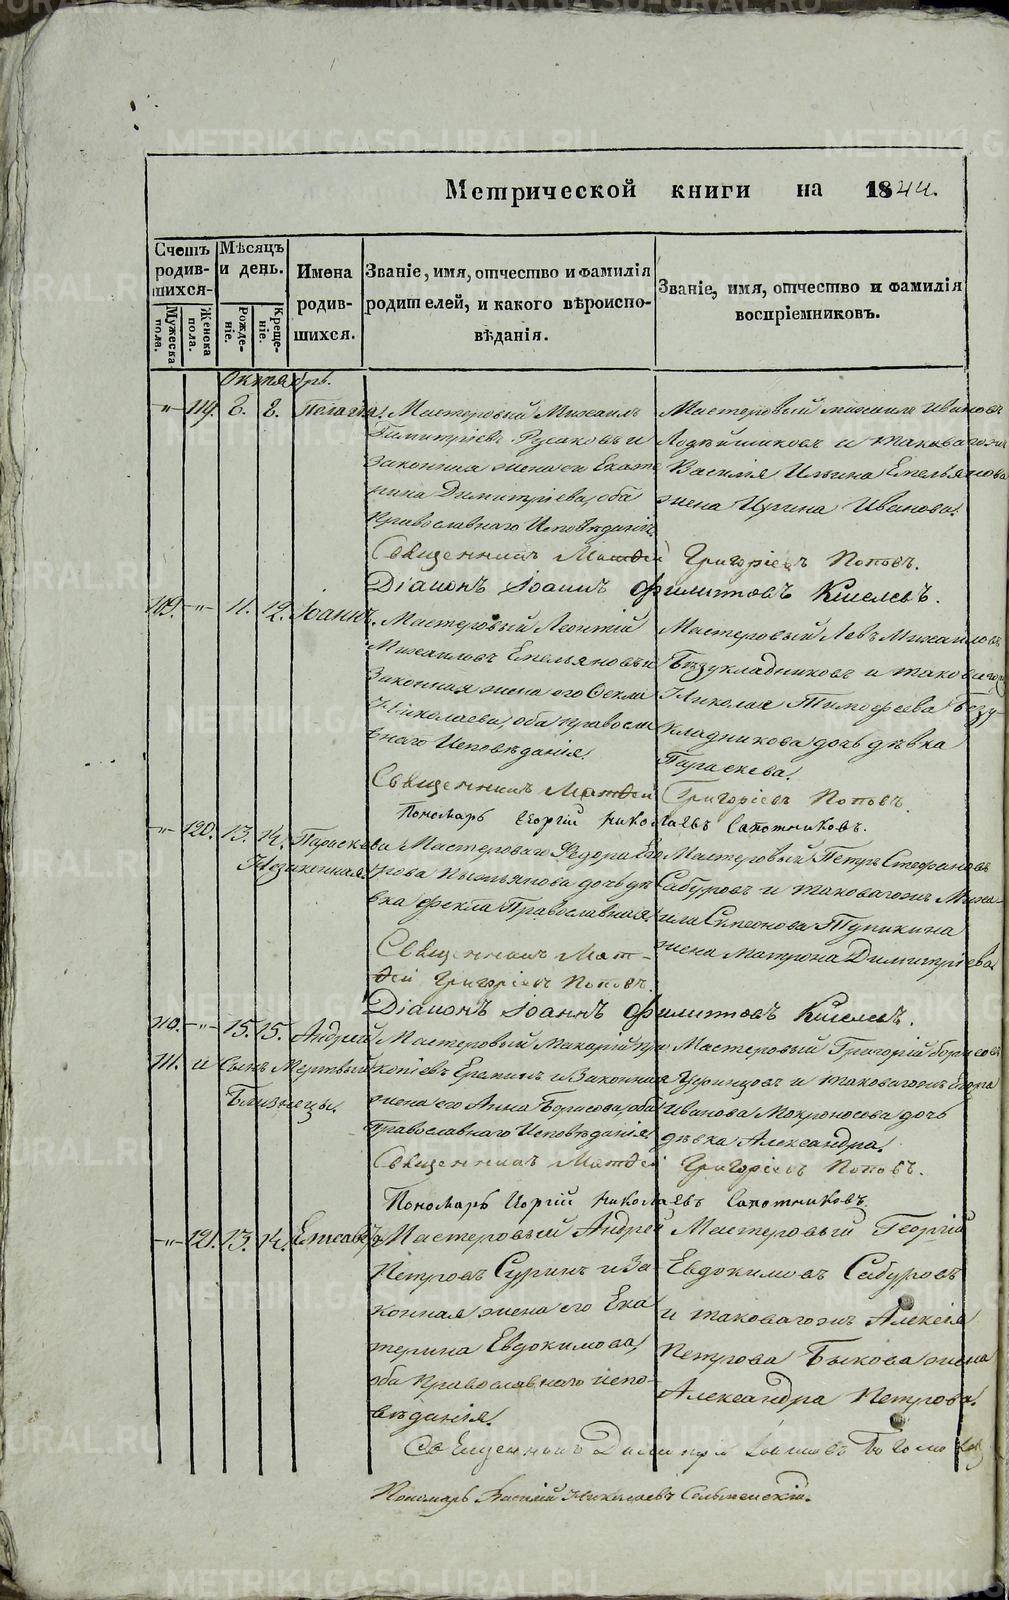 METRIKI.GASO-URAL.RU
Метрической книги на 1844.
Счетъ родив-шихся.
Мужеска пола.
Женска пола.
Мѣсяцъ и день.
Рожде-ніе.
Креще-ніе.
Имена родив-шихся.
Званіе, имя, отчество и фамилія родителей, и какого вѣроиспо-вѣданія.
Званіе, имя, отчество и фамилія воспріемниковъ.
Октябрь.
-"- 119. 8. 8. Пелагія. Мастеровый Михаилъ
Димитріевъ Русаковъ и
законная жена его Екате
рина Димитріева, оба
православнаго Исповѣданія.
Мастеровый Михаилъ Ивановъ
и таковагоже
Василія Ильина Емельянова
жена Ирина Иванова.
Священникъ Матѳей Григоріевъ Поповъ.
Діаконъ Іоаннъ Филиповъ Киселевъ.
109. -"- 11. 12. Іоаннъ. Мастеровый Леонтій
Михаиловъ Емельяновъ и
Законная жена его Ѳекла
Николаева, оба православ
наго Исповѣданія.
Мастеровый Левъ Михаиловъ
Безукладниковъ и таковагоже
Николая Тимофеева Безу-
кладникова дочь дѣвка
Параскева.
Священникъ Матѳей Григоріевъ Поповъ.
Пономарь Георгій Николаевъ Сапожниковъ.
-"- 120. 13. 14. Параскева
Незаконная.
Мастероваго Федора Его
рова дочь дѣ
вка Фекла Православная.
Мастеровый Петръ Стефановъ
Сабуровъ и таковагоже Миха-
ила Симеонова Тупикина
жена Матрона Димитріева.
Священникъ Мат-
ѳей Григоріевъ Поповъ.
Діаконъ Іоаннъ Филиповъ Киселевъ.
110. -"- 15. 15. Андрей
111. и Сынъ Мертвый
Близнецы.
Мастеровый Макарій Про
копіевъ Ереминъ и Законная
жена его Анна Борисова, оба
православнаго Исповѣданія.
Мастеровый Григорій Борисовъ
и таковагоже Егора
Иванова Мокроносова дочь
дѣвка Александра.
Священникъ Матѳей Григоріевъ Поповъ.
Пономарь Георгій Николаевъ Сапожниковъ.
-"- 121. 13. 14. Елисаветъ
Мастеровый Андрей
Петровъ Суринъ и За-
конная жена его Ека
терина Евдокимова,
оба православнаго испо-
вѣданія.
Мастеровый Георгій
Евдокимовъ Сабуровъ
и таковагоже Алексія
Петрова Быкова жена
Александра Петрова.
Священникъ Димитрій
Пономарь Василій Николаевъ
METRIKI.GASO-URAL.RU